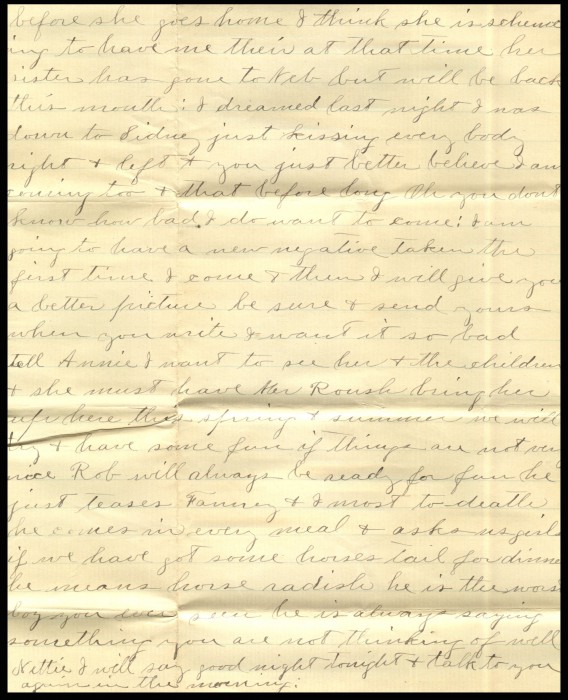 before she goes home I think she is schem
ing to have me their at that time her
sister has gone to Neb but will be back
this month: I dreamed last night I was
down to Sidney just kissing every body
right & left & you just better believe I am
coming too & that before long Oh you dont
know how bad I do want to come: I am
going to have a new negative taken the
first time I come & then I will give you
a better picture be sure & send yours
when you write I want it so bad
tell Annie I want to see her & the children
& she must have Mr Roush bring her
up here this spring & summer we will
try & have some fun if things are not very
nice Rob will always be ready for fun he
just teases Fanney & I most to death
he comes in every meal & asks us girls
if we have got some horses tail for dinner
he means horse radish he is the worst
boy you ever seen he is always saying
something you are not thinking of well
Nittie I will say good night tonight & talk to you
again in the morning: